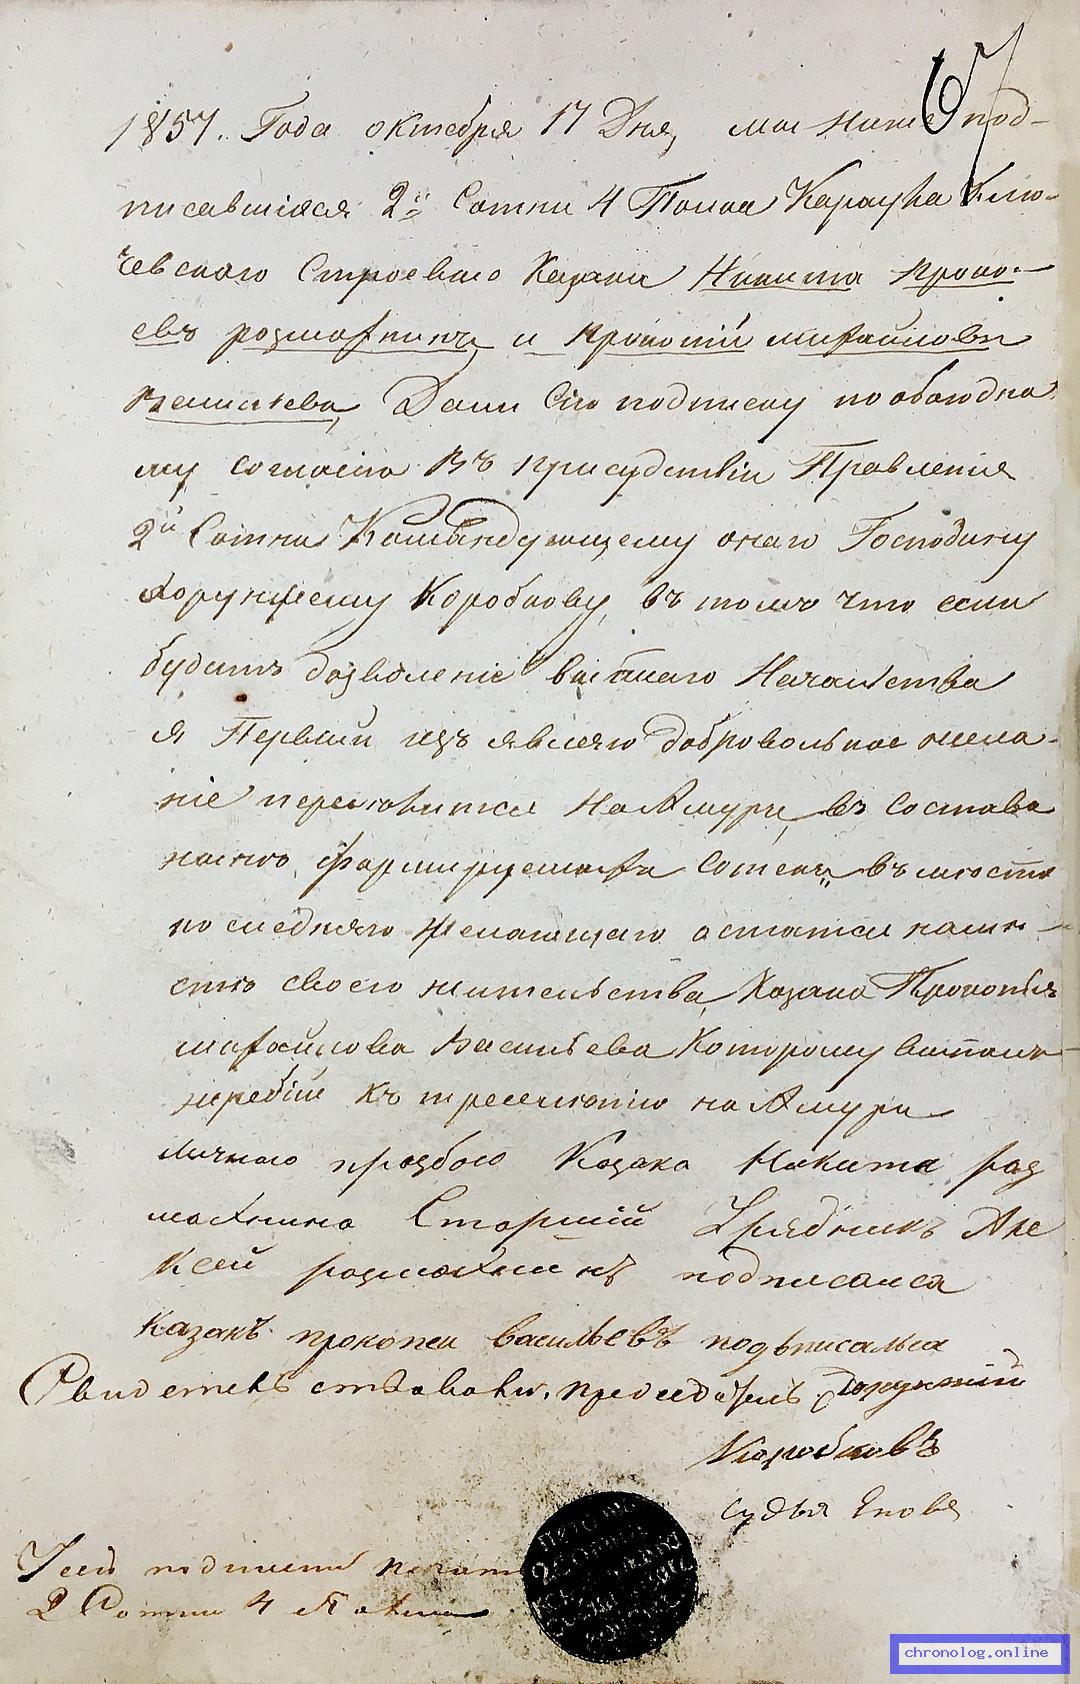 67
1857. Года октября 17 Дня, мы ниже под-
писавшіяся 2й Сотни 4 Полка Караула Клю-
чевскаго Строеваго Казаки Никита Проко-
евъ розмахнинъ, и прокопій михайловъ
Васильева, Дали Сію подписку по обоюдно
му согласію Въ присудствіи Правленія
2й Сотни Командующему онаго Господину
Хорунжему Коробкову, въ томъ что если
будитъ дозволеніе высшаго Начальства
я Первый изъявляю добровольное жела-
ніе переселитися На Амуръ, въ состава
нныхъ, формируемыхъ Сотенъ, въ место
последняго желающаго остатся на мѣ-
стѣ своего жительства, Казака Прокопья
михайлова Васильева Которому выпалъ
жеребій къ преселенію на Амуръ
личною прозбою Казака Никиты раз
махнина Старшій Урядникъ Але
Ксей размахнинъ подписался
Казакъ прокопеи васильевъ подъписалса
Свидетельствовали, председатель Хорунжій
Коробковъ
судья Еповъ
У сей подписки печать
2 Сотни 4 Полка
chronolog.online